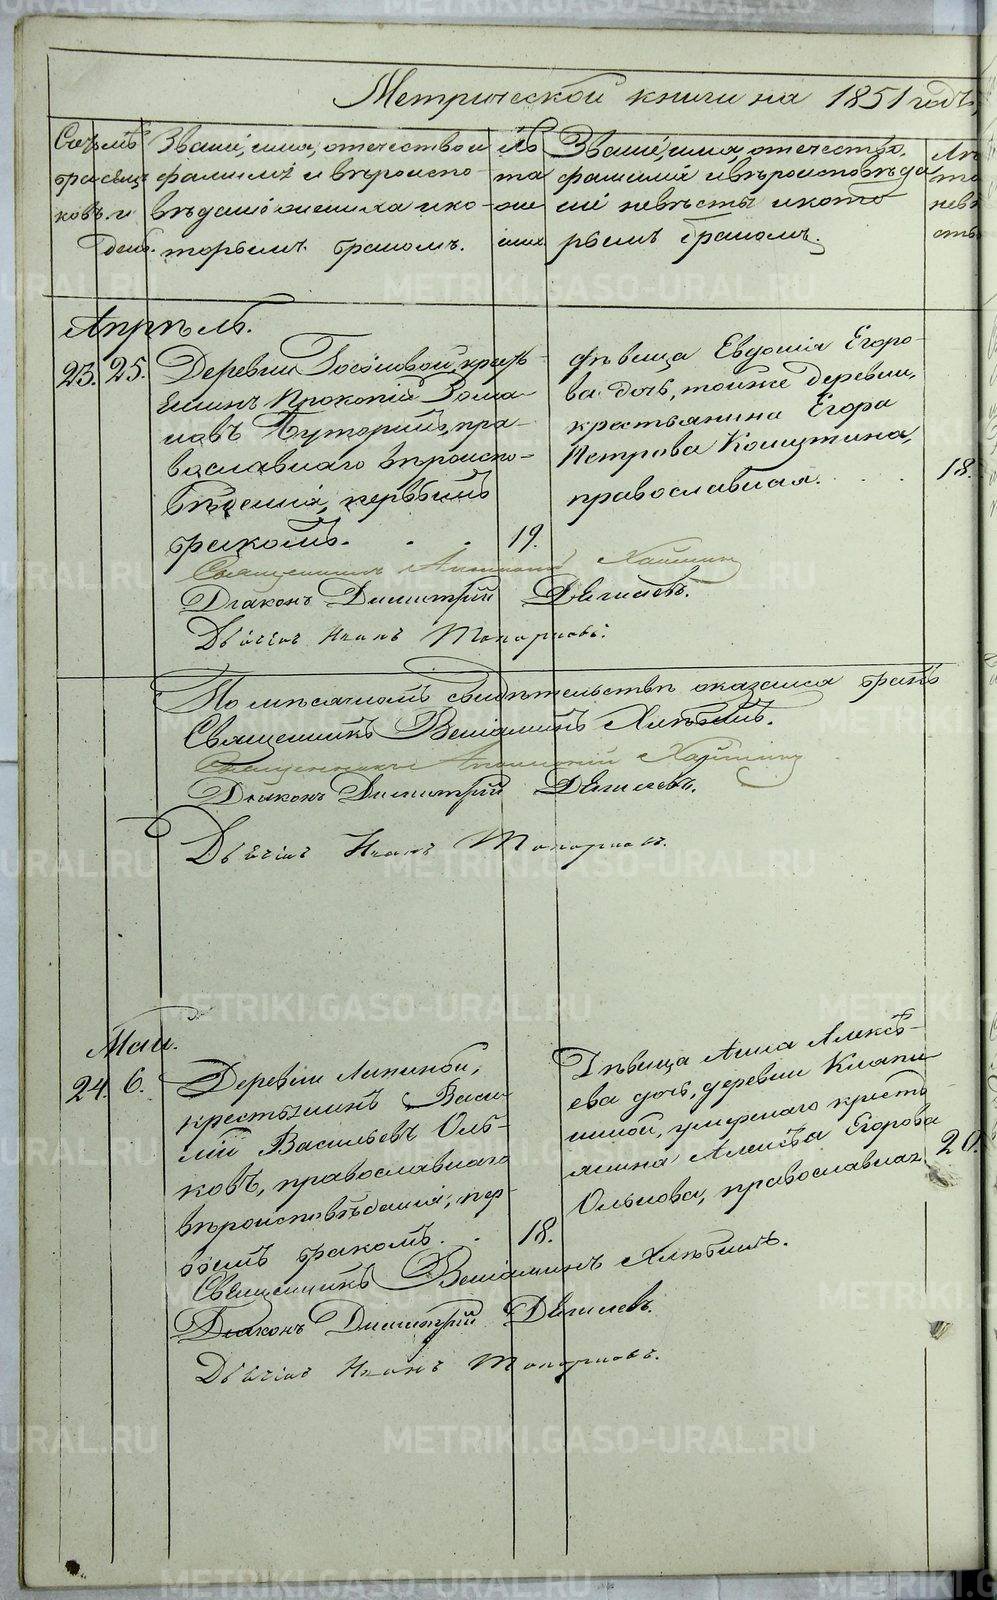 Метрической книги на 1851 годъ,
Счетъ бра ковъ. мѣ сяцъ и день.
Званіе, имя, отечество и
фамилія и вѣроиспо-
вѣданіе жениха и ко-
торымъ бракомъ.
Лѣ та же ниха
Званіе, имя, отечество,
фамилія и вѣроисповѣда
ніе невѣсты и кото
рымъ бракомъ.
Лѣ та невѣ сты
Апрѣль.
23. 25. Деревни кресть-
янинъ Прокопій Рома-
новъ пра-
вославнаго вѣроиспо-
вѣданія, первымъ
бракомъ. . . 19.
Дѣвица Евдокія Егоро-
ва дочь, тойже деревни,
крестьянина Егора
Петрова
православная. . . 18.
Священникъ
Діаконъ Димитрій Дягилевъ.
Дьячекъ Иванъ Топорковъ.
По мѣсячномъ свидѣтельствѣ оказался бракъ
Священникъ Веніаминъ Хлѣбинъ.
Священникъ
Діаконъ Димитрій Дягилевъ.
Дьячекъ Иванъ Топорковъ.
Маи.
24. 6. Деревни Липиной,
крестьянинъ Васи-
лій Васильевъ Оль-
ковъ, православнаго
вѣроисповѣданія, пер-
вымъ бракомъ. . 18.
Дѣвица Анна Алексѣ-
ева дочь, деревни
умершаго кресть
янина Алексѣя Егорова
Олькова, православная 20.
Священникъ Веніаминъ Хлѣбинъ.
Діаконъ Димитрій Дягилевъ.
Дьячекъ Иванъ Топорковъ.
METRIKI.GASO-URAL.RU